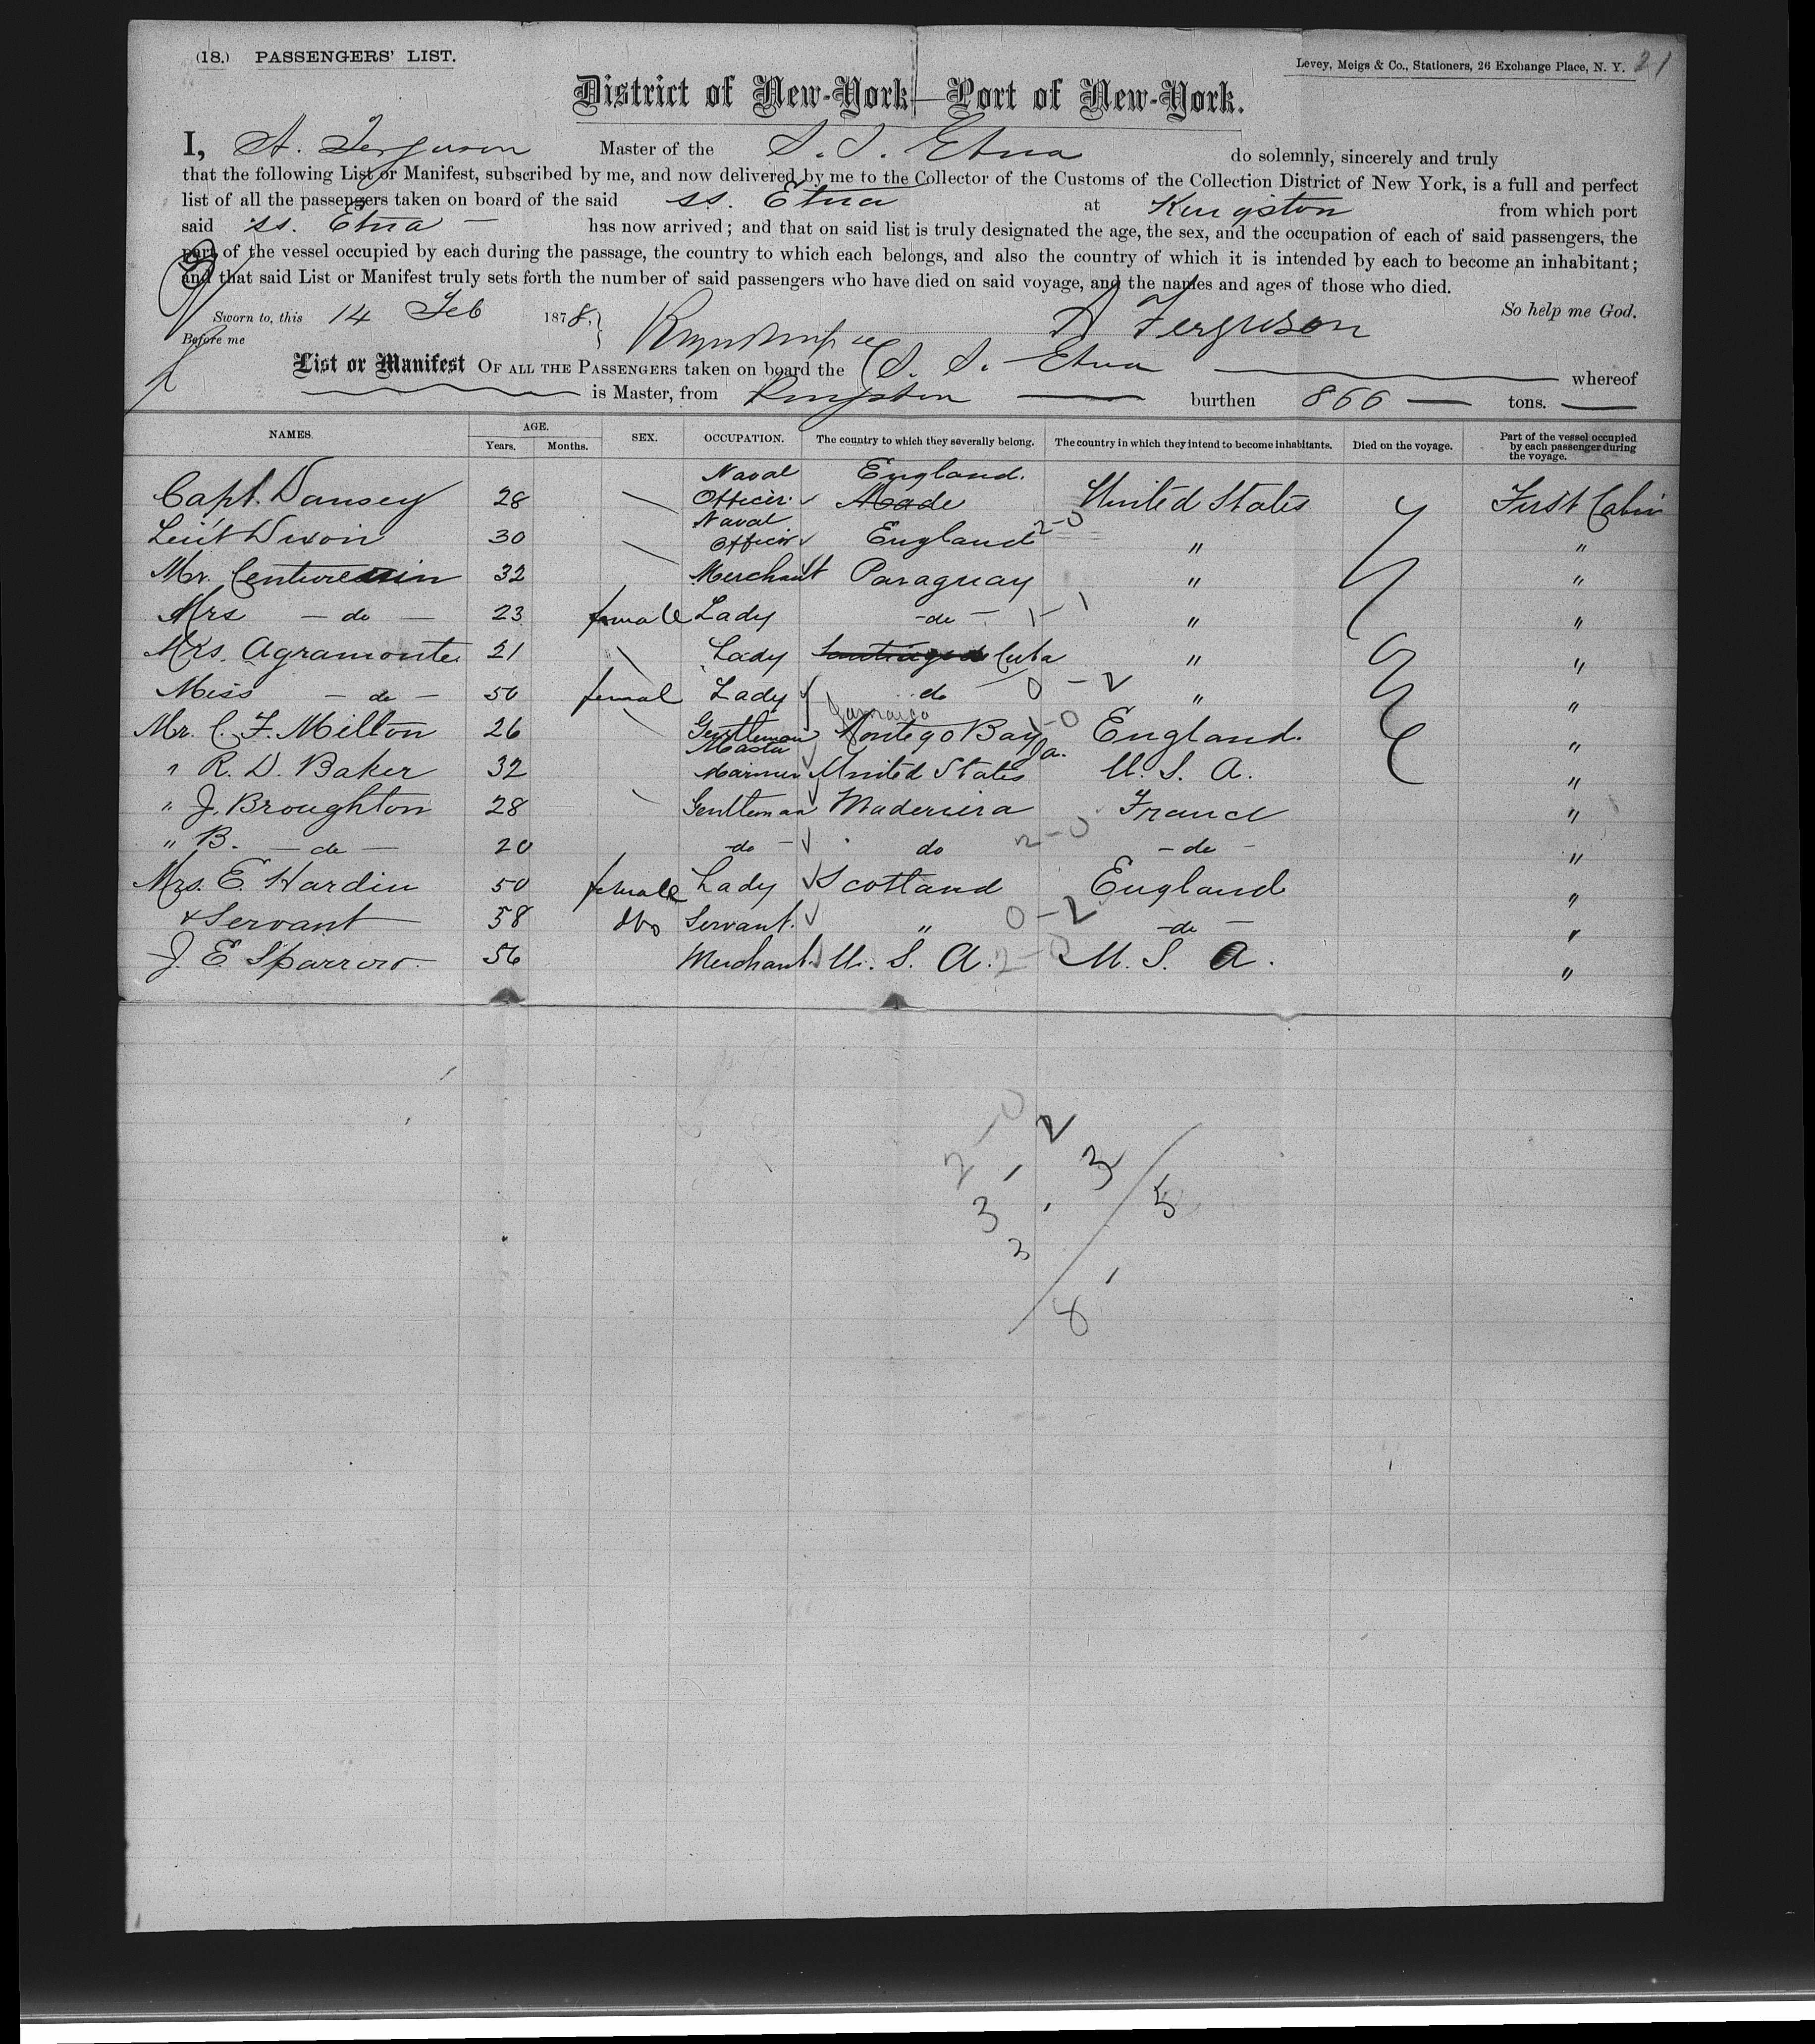 (18.) PASSENGERS' LIST.
Levey, Meigs & Co., Stationers, 26 Exchange Place, N. Y. 21
District of New-York—Port of New-York.
I, A. Ferguson Master of the S. S. Etna do solemnly, sincerely and truly
that the following List or Manifest, subscribed by me, and now delivered by me to the Collector of the Customs of the Collection District of New York, is a full and perfect
list of all the passengers taken on board of the said ss. Etna at Kingston from which port
said ss. Etna — has now arrived; and that on said list is truly designated the age, the sex, and the occupation of each of said passengers, the
part of the vessel occupied by each during the passage, the country to which each belongs, and also the country of which it is intended by each to become an inhabitant;
and that said List or Manifest truly sets forth the number of said passengers who have died on said voyage, and the names and ages of those who died.
So help me God.
Sworn to, this 14 Feb 1878.
A Ferguson
Before me
List or Manifest OF ALL THE PASSENGERS taken on board the S. S. Etna whereof
is Master, from Kingston — burthen 866 — tons. —
NAMES. AGE. Years. Months. SEX. OCCUPATION. The country to which they severally belong. The country in which they intend to become inhabitants. Died on the voyage. Part of the vessel occupied by each passenger during the voyage.
Capt. Dansey 28 Naval Officer England. United States First Cabin
Lieut Dixon 30 Naval Officer England 2-0 " "
Mr. 32 Merchant Paraguay " "
Mrs — do — 23 female Lady -do- 1-1 " "
Mrs. Agramonte 21 Lady Cuba " "
Miss — do — 50 female Lady do 0-2 " "
Mr. C. F. Milton 26 Gentleman Jamaica Montego Bay Ja. 1-0 England. "
" R. D. Baker 32 Master Mariner United States U. S. A. "
" J. Broughton 28 Gentleman Maderiera France "
" B. — do — 20 -do- do 2-0 -do- "
Mrs. E. Hardin 50 female Lady Scotland England "
& Servant 58 do Servant. " 0-2 -do- "
J. E. Sparrow 56 Merchant. U. S. A. 2-0 U. S. A. "
2-0
2
3
3
3
5
8